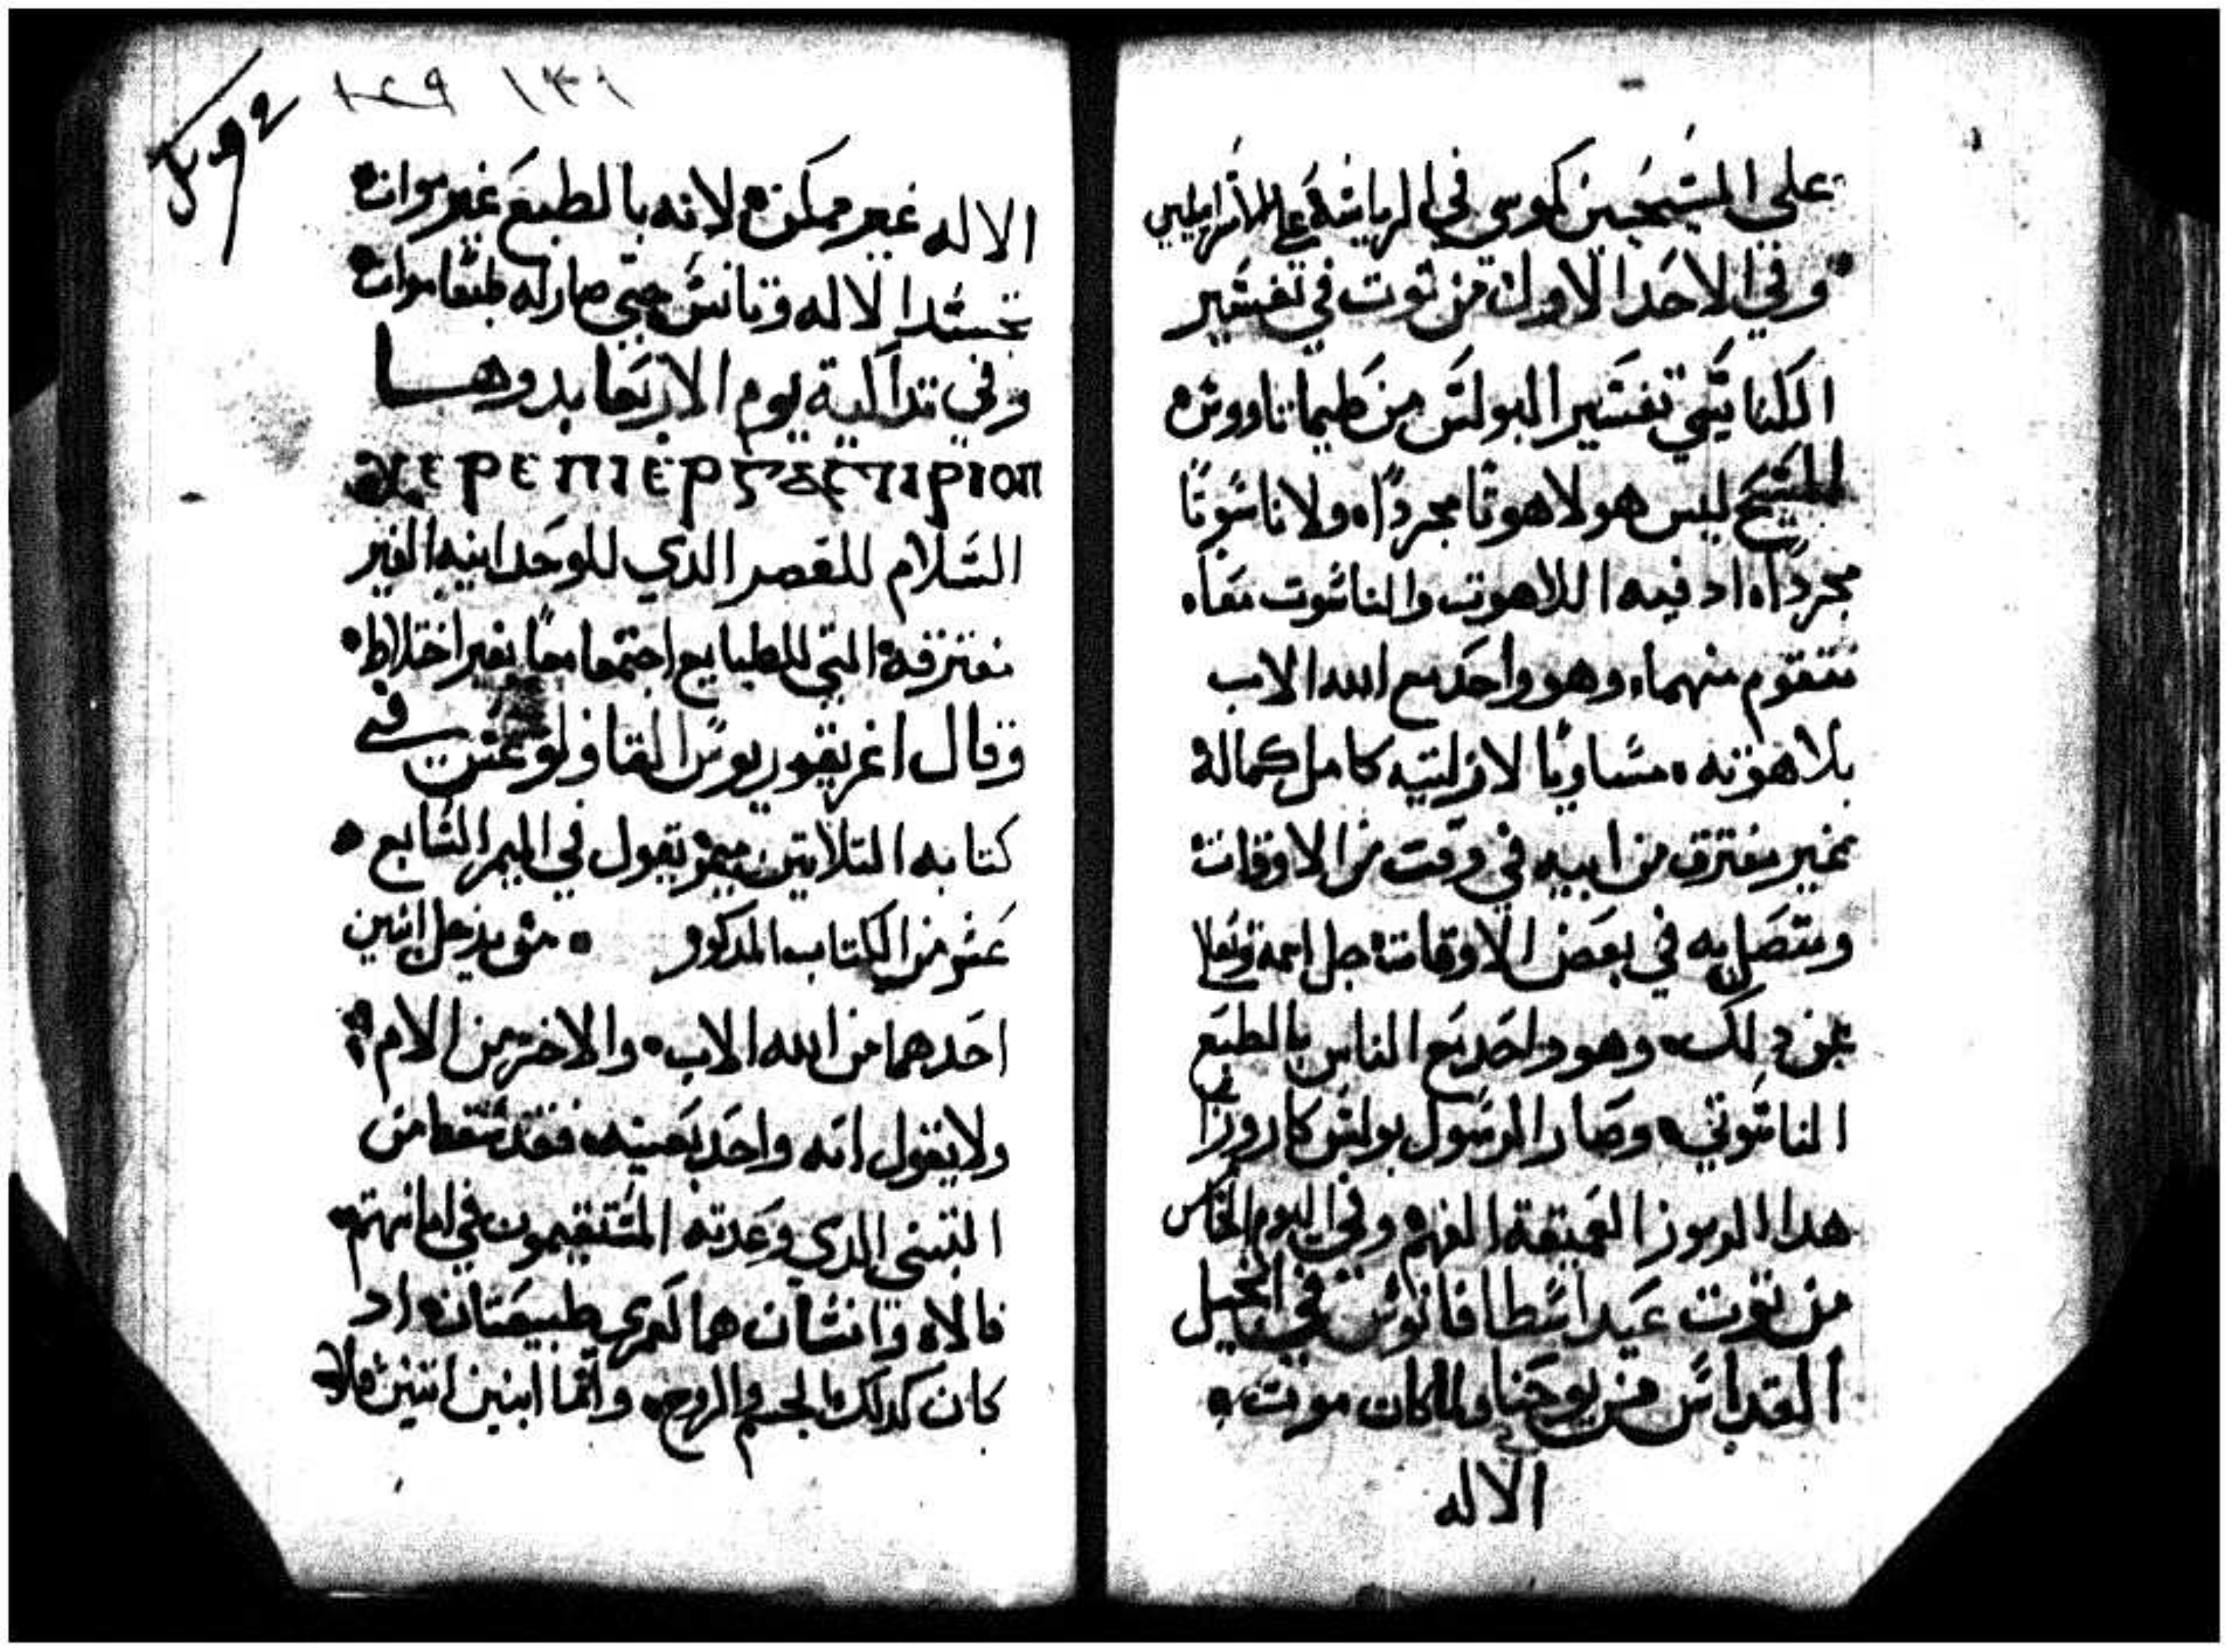 على المسيحيين كموسى في الرياسة على الاسراييليين
وفي الاحد الاول من توت في تفسير
الكتاب يتمي تفسير البولس من طيماتاووس
المسيح ليس هو لاهوتا مجردا ولا ناسوتا
مجردا اد فيه اللاهوت والناسوت معا
متقوم منهما وهو واحد مع الله الاب
بلاهوته مساويا لازليته كامل كماله
بغير مفترق من ابيه في وقت من الاوقات
ومتصل به في بعض الاوقات جل اسمه وتعالا
عن دلك وهو واحد مع الناس بالطبع
الناسوتي وصار الرسول بولس كاروزا
هدا الرموز العميقة الفهم وفي اليوم الخامس
من توت عيد اسطافانوس في انجيل
القداس من يوحنا ولما كان موت
الاله
١٣١ ١٤٩
الاله غير ممكن لانه بالطبع غير موات
تجسد الاله وتانس حتى صار له طبعا موات
وفي تداكية يوم الاربعا بدوها
ⲭⲉⲣⲉ ⲡⲓⲉⲣⲅⲁⲥⲧⲓⲣⲓⲟⲛ
السلام للقصر الدي للوحدانيه الغير
مفترقه التي للطبايع اجتمعا معا بغير اختلاط
وقال اغريقوريوس التاولوغس في
كتابه التلاتين ميمر يقول في الميمر السابع
عشر من الكتاب المدكور من يدخل ابنين
احدهما من الله الاب والاخر من الام
ولا يقول انه واحد بعينه فقد سقط من
التبني الدي وعدته المستقيمون في امانتهم
فالاه وانسان هما لعمري طبيعتان اد
كان كدلك الجسم والروح واما ابنين اتنين فلا